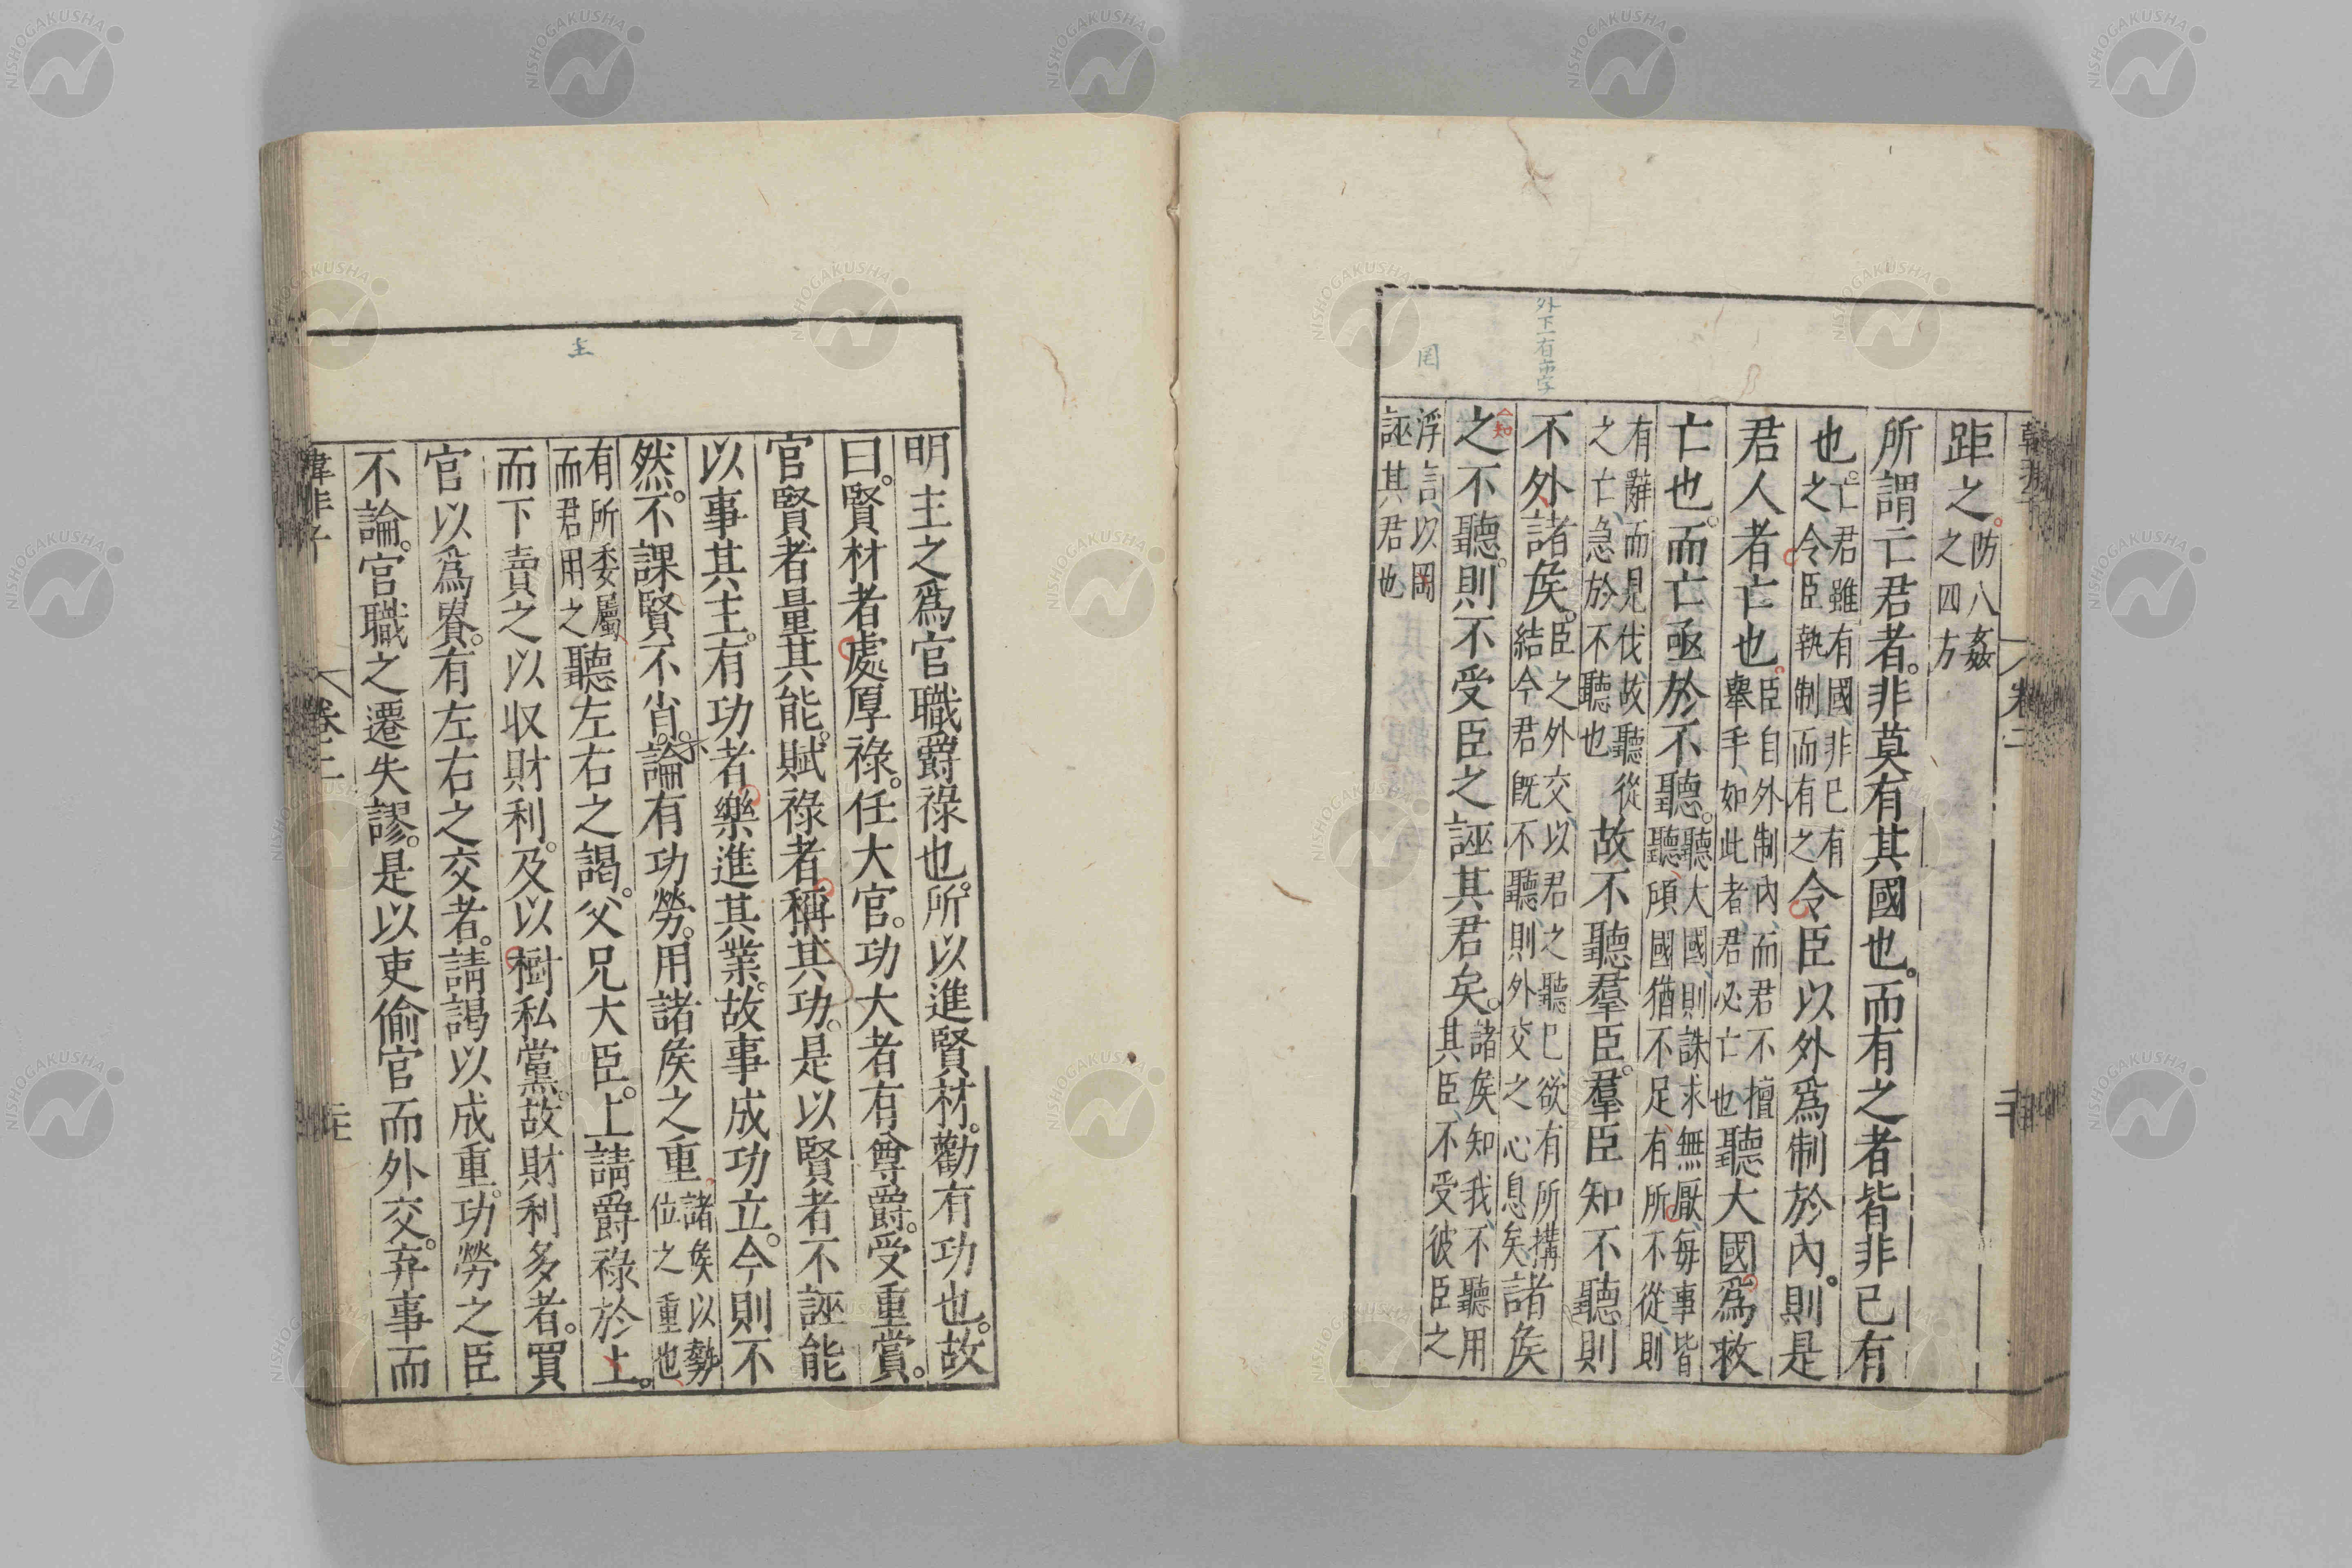 韓非子 卷二
距之。防八姦之四方
所謂亡君者。非莫有其國也。而有之者皆非已有
也。亡君雖有國、非已有之、令臣執制而有之令臣以外爲制於內。則是
君人者亡也。臣自外制內、而君不擅舉手、如此者、君必亡也聽大國爲救
亡也。而亡亟於不聽。聽大國、則誅求無厭、每事皆聽、頎國猶不足、有所不從、則
有辭而見伐、故聽從之亡、急於不聽也故不聽羣臣。羣臣知不聽則
不外諸矦。臣之外交、以君之聽已、欲有所搆結、今君既不聽、則外交之心息矣諸矦
之不聽。則不受臣之誣其君矣。諸矦知我、不聽用其臣、不受彼臣之
浮言、以罔誣其君也
外下一有市字
罔
知
明主之爲官職爵祿也。所以進賢材。勸有功也。故
曰。賢材者處厚祿。任大官。功大者有尊爵。受重賞。
官賢者量其能。賦祿者稱其功。是以賢者不誣能
以事其主。有功者樂進其業。故事成功立。今則不
然。不課賢不省。論有功勞。用諸矦之重。諸矦以勢位之重也
有所委屬、而君用之聽左右之謁。父兄大臣。上請爵祿於上。
而下賣之以収財利。及以樹私黨。故財利多者。買
官以爲貴。有左右之交者。請謁以成重。功勞之臣
不論。官職之遷失謬。是以吏偷官而外交。弃事而
韓非子 卷二
主